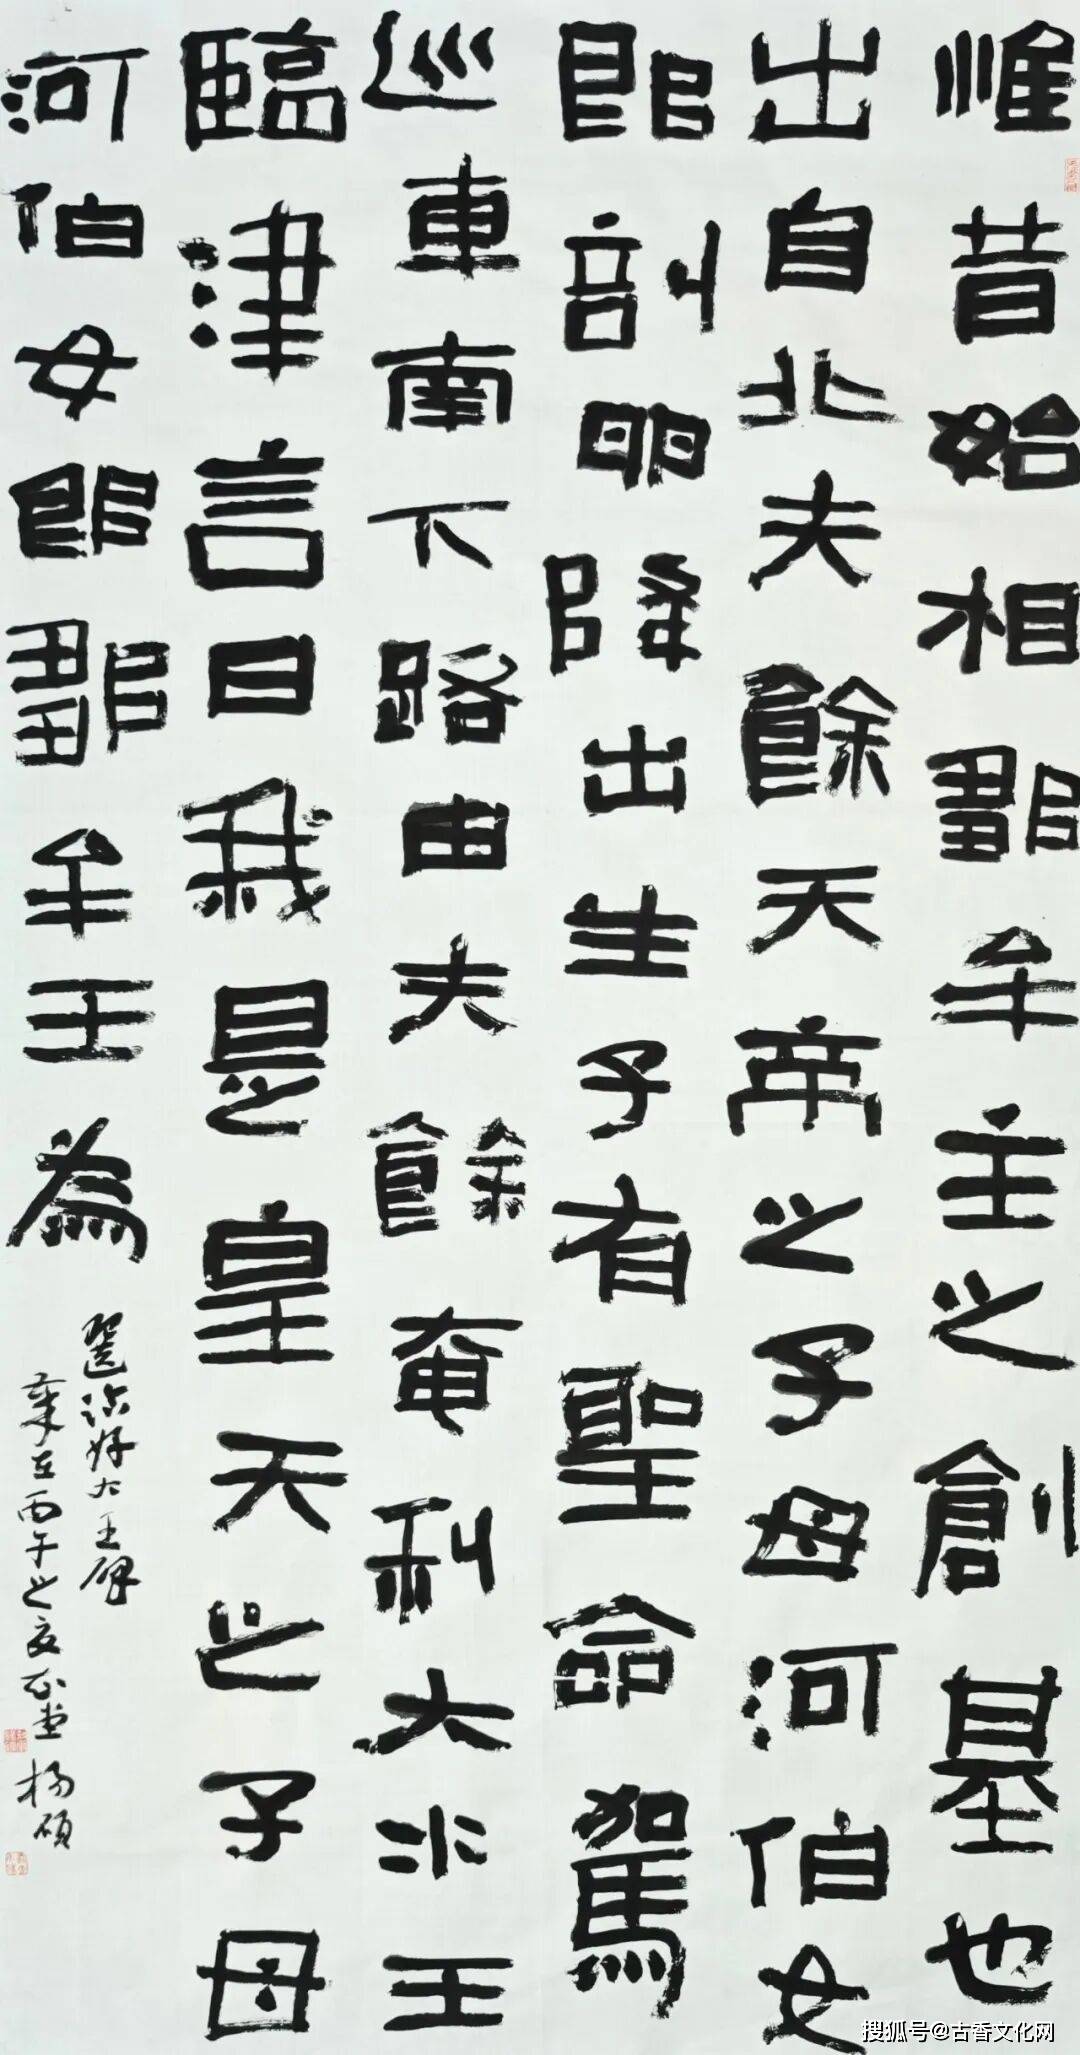 惟昔始相鄒牟主之創基也
出自北夫餘天帝之子母河伯女
郎剖卵降出生子有聖命駕
巡車南下路由夫餘奄利大水王
臨津言曰我是皇天之子母
河伯女郎鄒牟王為
選臨好大王碑
歲在丙午之夏 楊碩
搜狐号@古香文化网